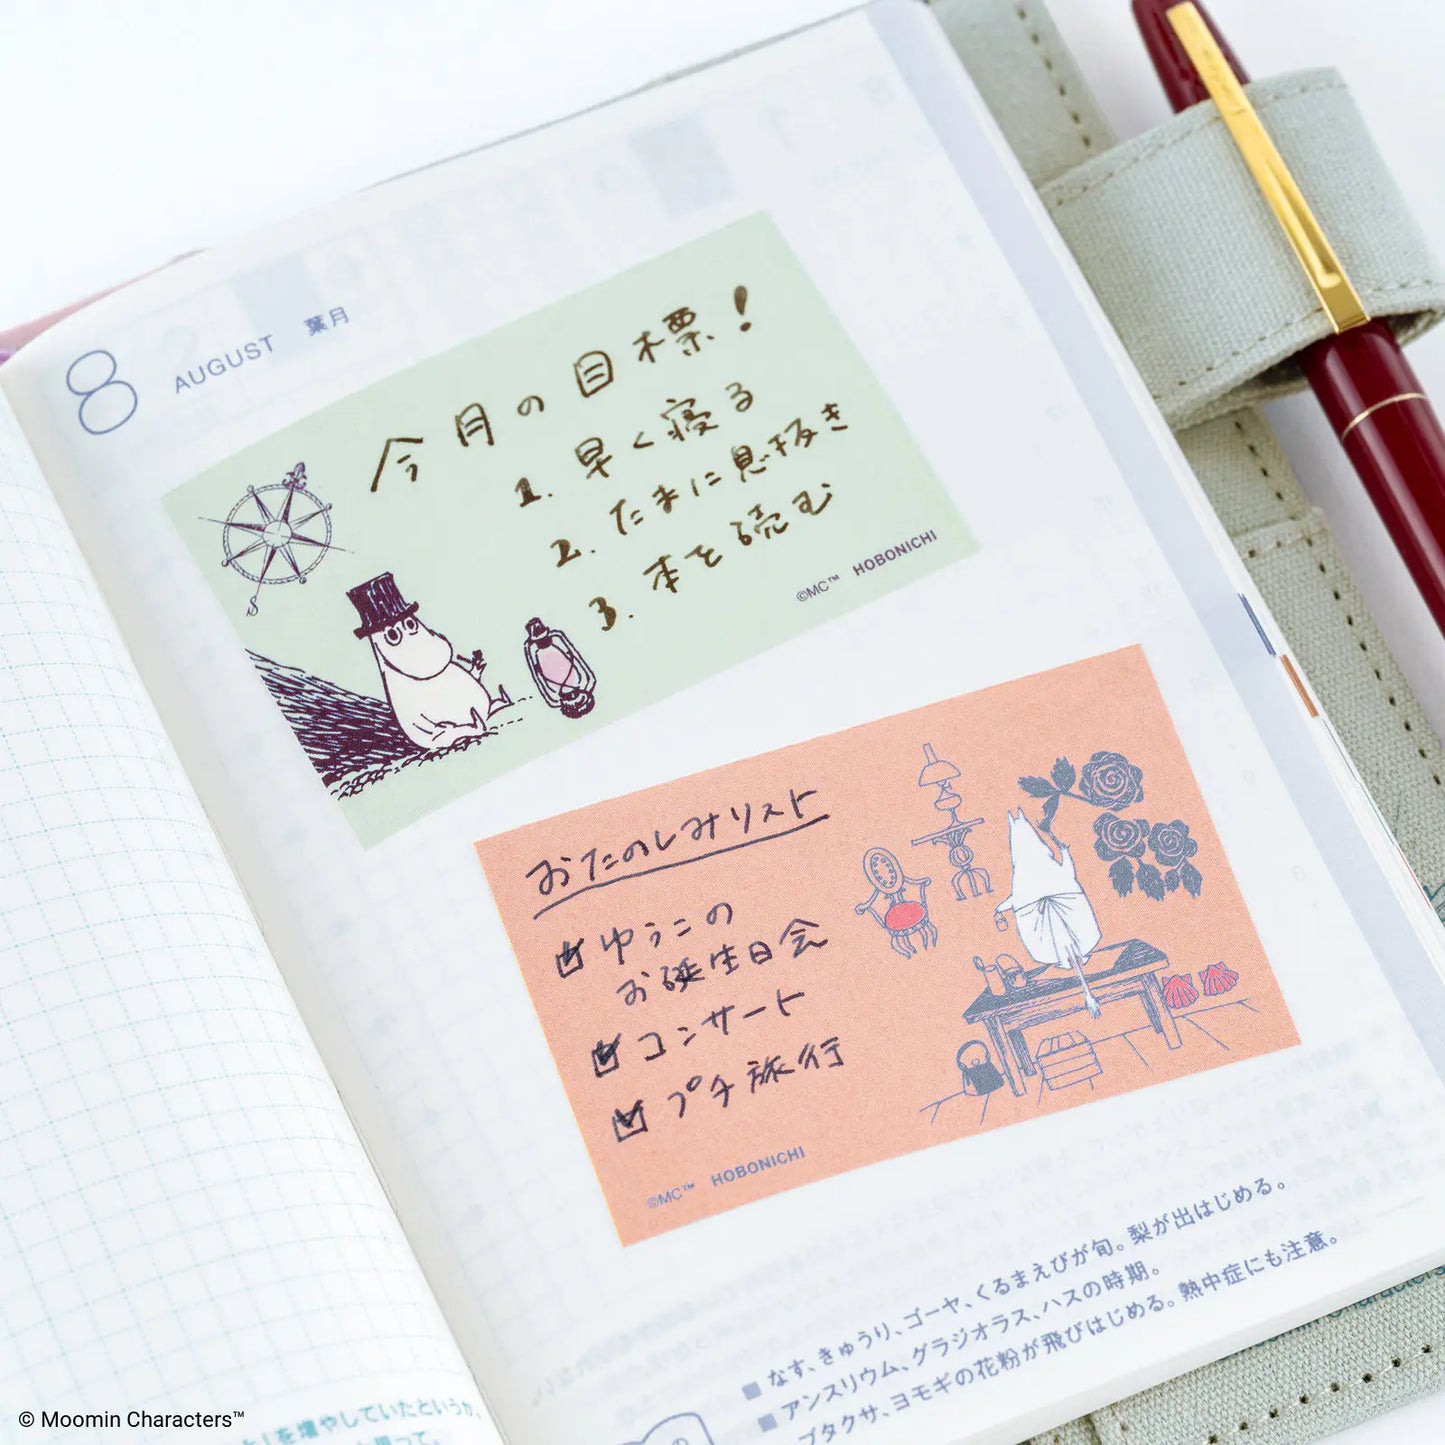 8 AUGUST 葉月
今月の目標!
1. 早く寝る
2. たまに息抜き
3. 本を読む
S
©MC™ HOBONICHI
おたのしみリスト
ゆうこの
お誕生日会
コンサート
プチ旅行
©MC™ HOBONICHI
■ なす、きゅうり、ゴーヤ、くるまえびが旬。梨が出はじめる。
■ アンスリウム、グラジオラス、ハスの時期。
■ ブタクサ、ヨモギの花粉が飛びはじめる。熱中症にも注意。
を増やしていたというか、
© Moomin Characters™